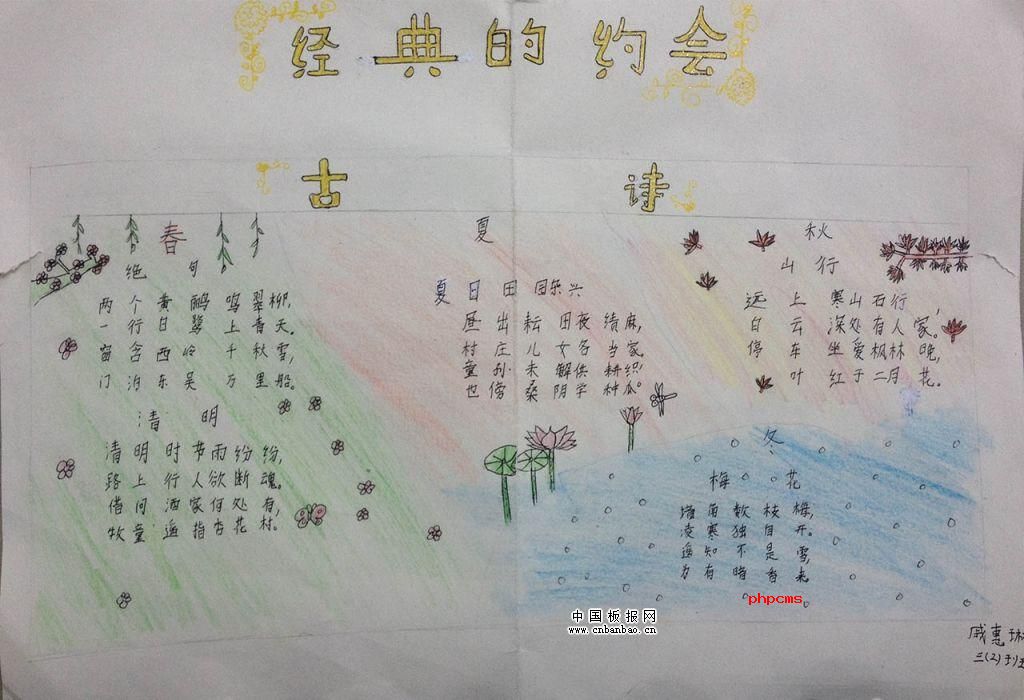 经典的约会
古诗
春
绝句
两个黄鹂鸣翠柳,
一行白鹭上青天。
窗含西岭千秋雪,
门泊东吴万里船。
清明
清明时节雨纷纷,
路上行人欲断魂。
借问酒家何处有,
牧童遥指杏花村。
夏
夏日田园乐兴
昼出耘田夜绩麻,
村庄儿女各当家。
童孙未解供耕织,
也傍桑阴学种瓜。
秋
山行
远上寒山石行,
白云深处有人家。
停车坐爱枫林晚,
叶红于二月花。
冬
梅花
墙角数枝梅,
凌寒独自开。
遥知不是雪,
为有暗香来
phpcms
中国板报网
www.cnbanbao.cn
戚惠琳
三(2)